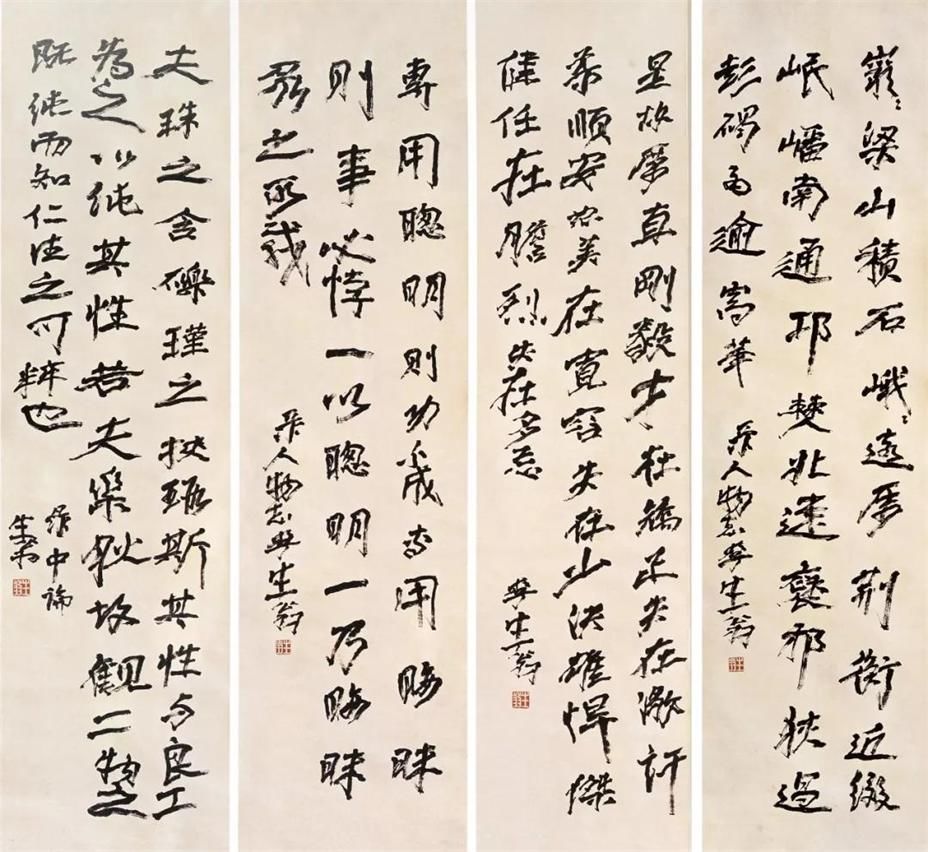 巖〻梁山積石峨〻遠屬荆衡近綴
岷嶓南通邛僰北達褒邪狹過
彭碣高逾嵩華
人物志 生翁
是故厲直剛毅才在矯正失在激訐
柔順安恕美在寬容失在少決雄悍傑
健任在膽烈失在多忌
生翁
專用聰明則功不成專用晦昧
則事必悖一以聰明一乃晦昧
眾之所載
人物志 生翁
夫珠之含礫瑾之挾瑕斯其性与良工
為之以純其性若夫 故觀二物之
既純而知仁德之可粹也
中論
生翁